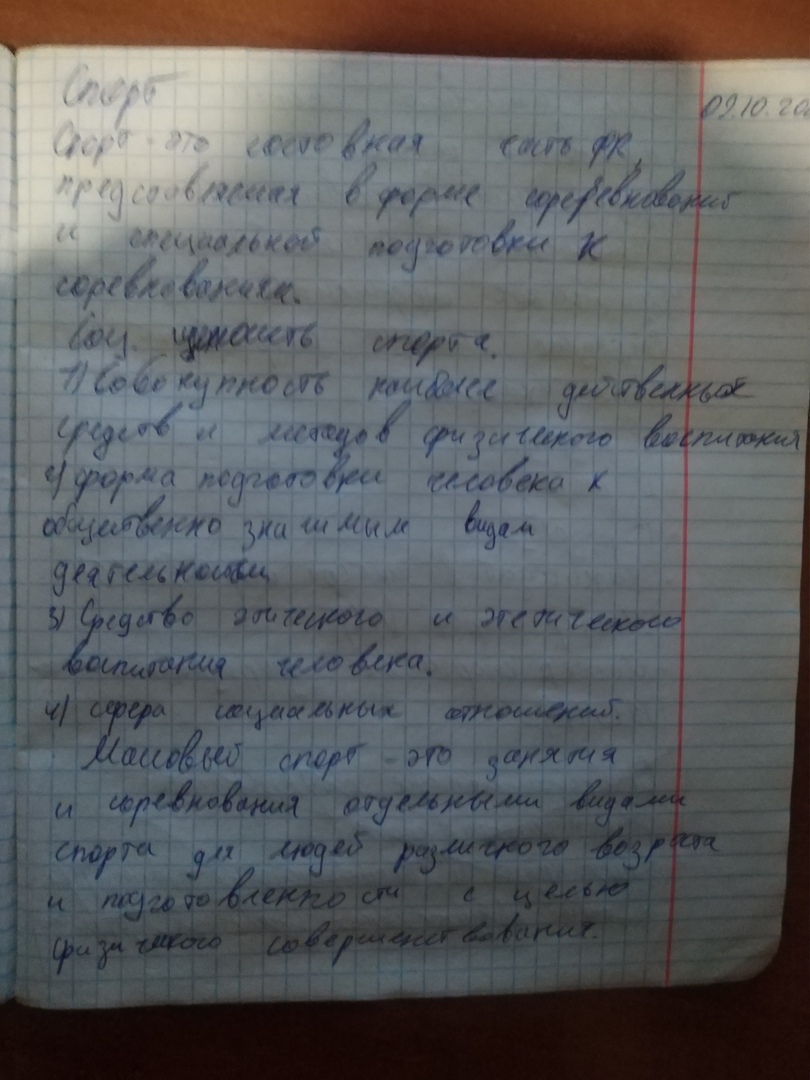 Спорт
02.10.20
Спорт - это составная часть ФК,
представленная в форме соревнований
и специальной подготовки к
соревнованиям.
Соц. ценность спорта.
1) Совокупность наиболее действенных
средств и методов физического воспитания
2) форма подготовки человека к
общественно значимым видам
деятельности
3) Средство этического и эстетического
воспитания человека.
4) сфера социальных отношений.
Массовый спорт - это занятия
и соревнования отдельными видами
спорта для людей различного возраста
и подготовленности с целью
физического совершенствования.